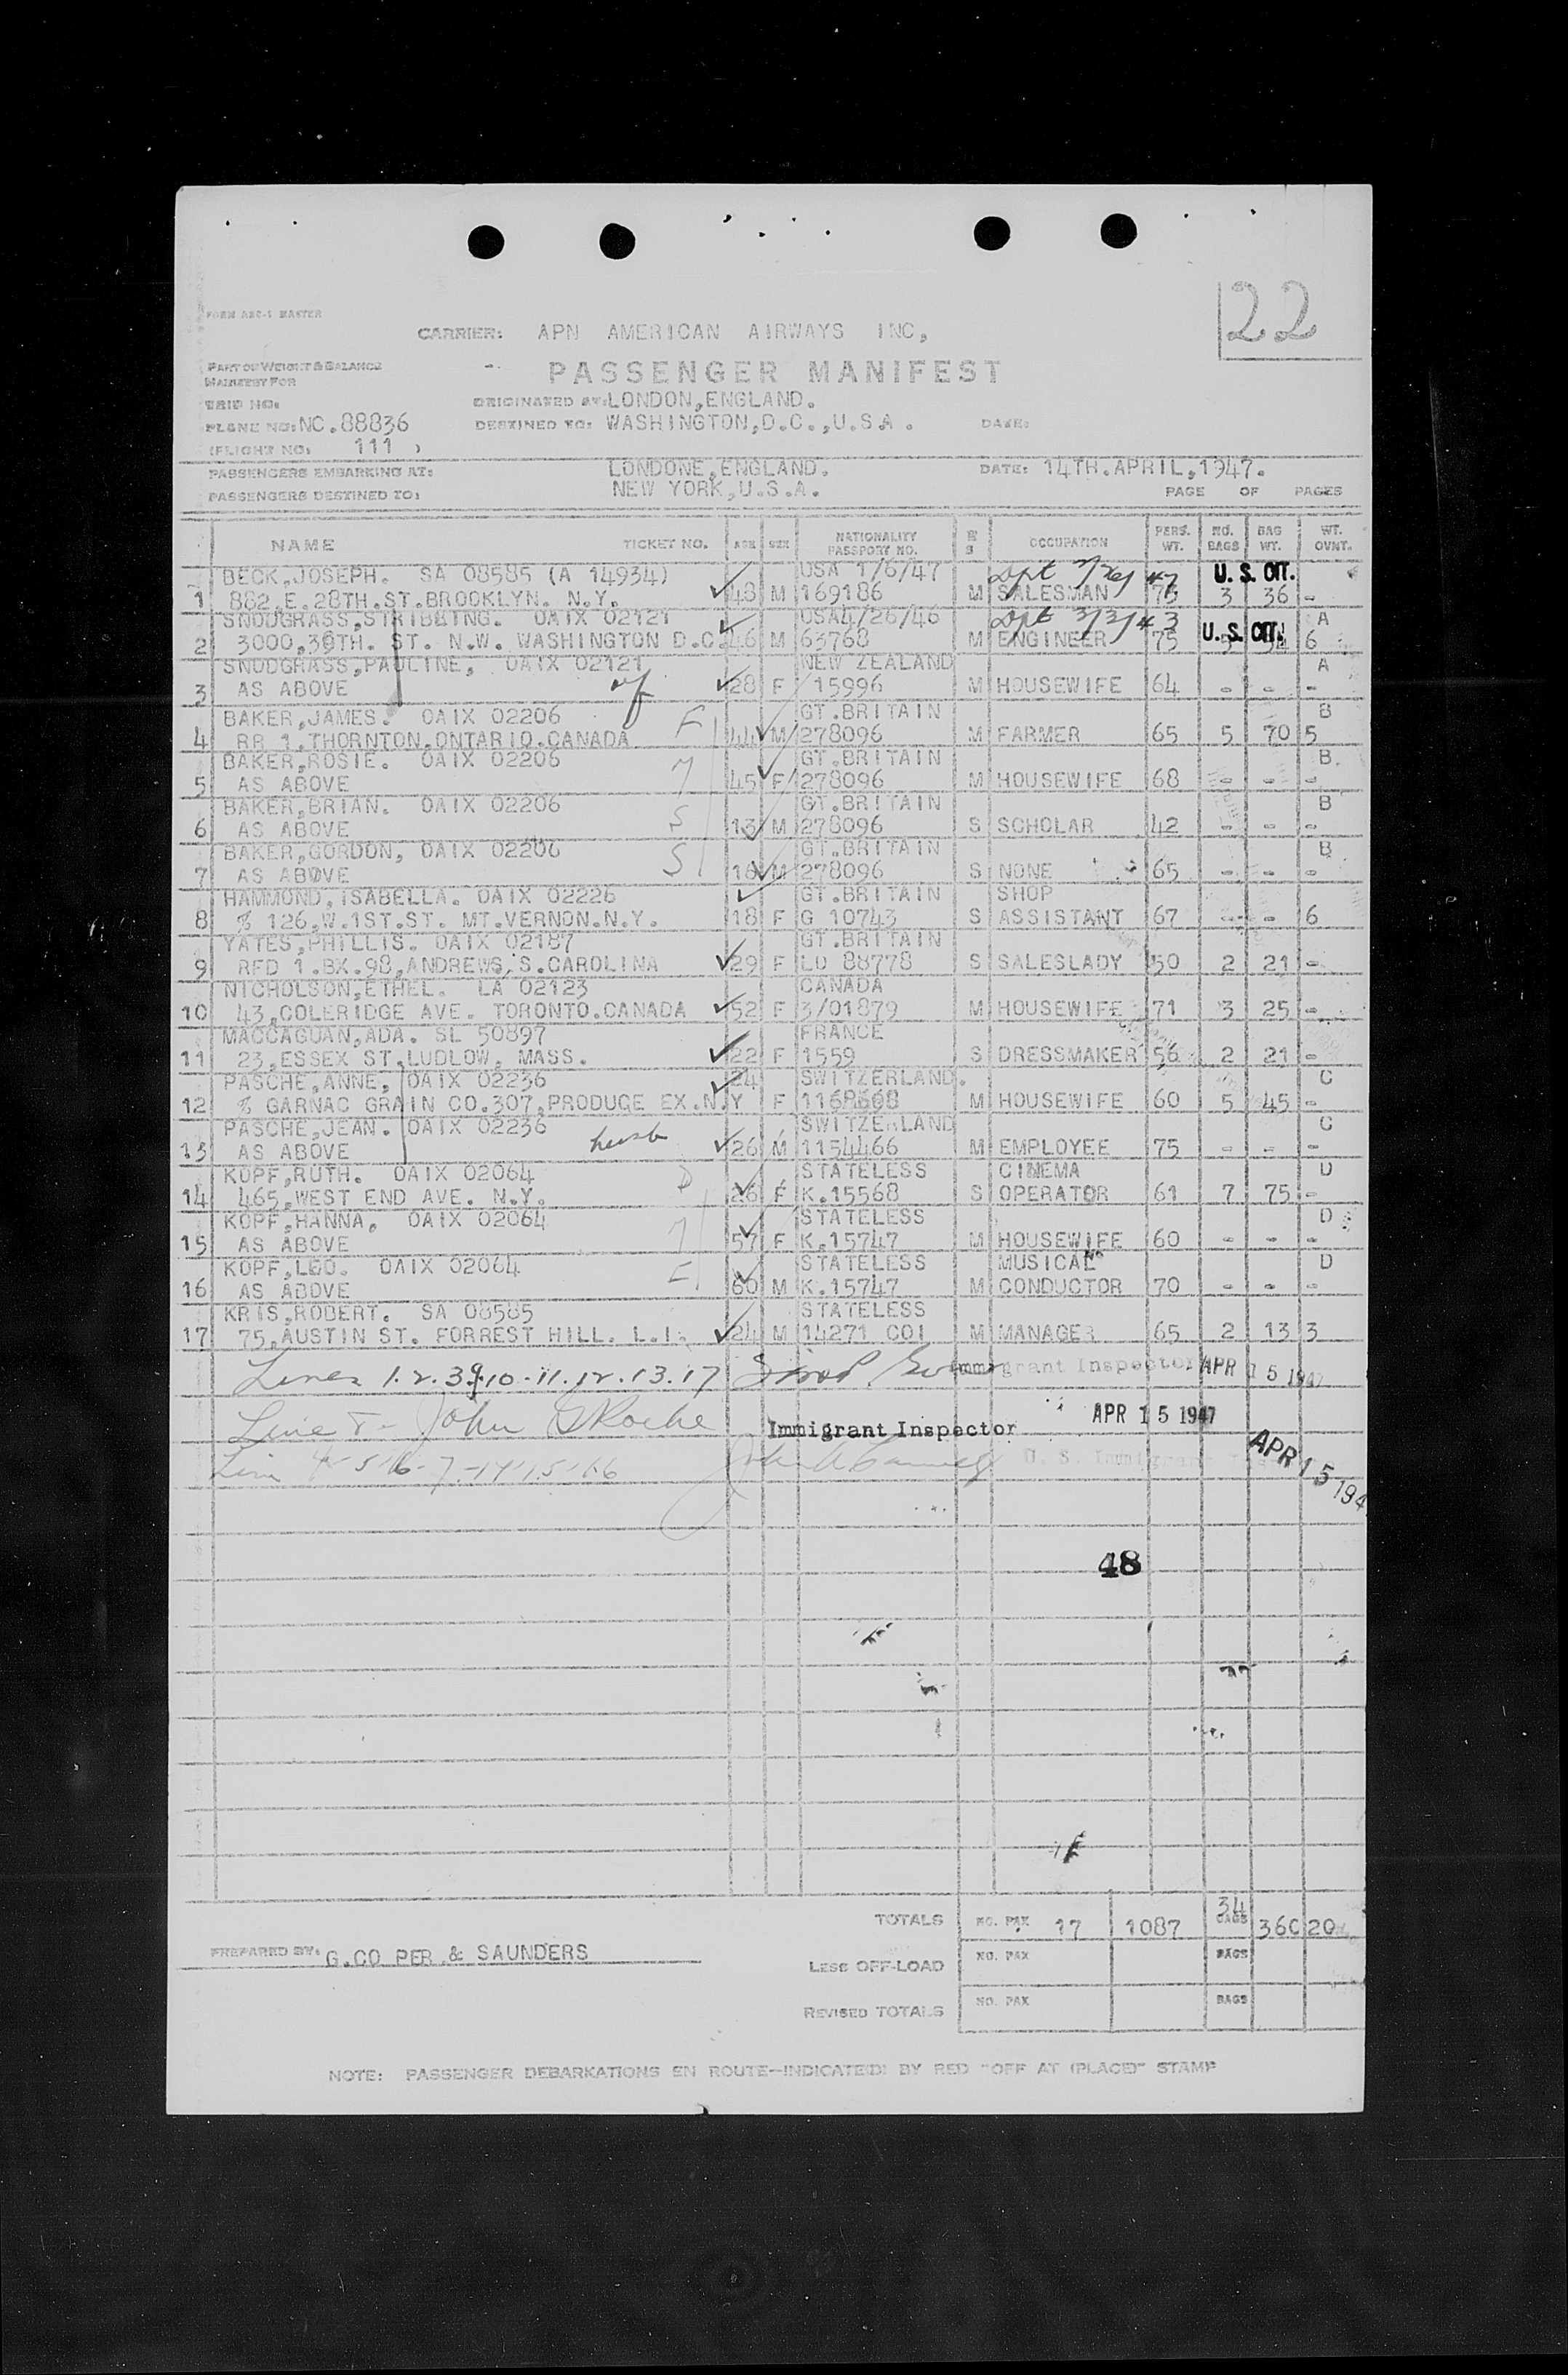 22
FORM ABC-1 MASTER
CARRIER: APN AMERICAN AIRWAYS INC,
PART OF WEIGHT & BALANCE
MANIFEST FOR
PASSENGER MANIFEST
TRIP NO:
ORIGINATED AT: LONDON, ENGLAND.
PLANE NO: NC.88836
DESTINED TO: WASHINGTON, D.C., U.S.A.
DATE:
(FLIGHT NO: 111 )
PASSENGERS EMBARKING AT: LONDONE, ENGLAND. DATE: 14TH.APRIL,1947.
PASSENGERS DESTINED TO: NEW YORK, U.S.A. PAGE OF PAGES
NAME TICKET NO. AGE SEX NATIONALITY PASSPORT NO. M S OCCUPATION PERS. WT. NO. BAGS BAG WT. WT. OVNT.
BECK,JOSEPH. SA 08585 (A 14934) USA 1/6/47 U.S. CIT.
1 882.E.28TH.ST.BROOKLYN. N.Y. 48 M 169186 M SALESMAN 75 3 36 -
SNODGRASS,STRIBLING. OAIX 02121 USA4/26/46 A
2 3000,39TH. ST. N.W. WASHINGTON D.C. 46 M 63768 M ENGINEER 75 U.S. CIT. 6
SNODGRASS,PAULINE, OAIX 02121 NEW ZEALAND A
3 AS ABOVE wf 28 F 15996 M HOUSEWIFE 64 - - -
BAKER,JAMES. OAIX 02206 F GT.BRITAIN B
4 RR 1.THORNTON.ONTARIO.CANADA 44 M 278096 M FARMER 65 5 70 5
BAKER,ROSIE. OAIX 02206 M GT.BRITAIN B.
5 AS ABOVE 45 F 278096 M HOUSEWIFE 68 - - -
BAKER,BRIAN. OAIX 02206 S GT.BRITAIN B
6 AS ABOVE 13 M 278096 S SCHOLAR 42 - - -
BAKER,GORDON, OAIX 02206 S GT.BRITAIN B
7 AS ABOVE 16 M 278096 S NONE 65 - - -
HAMMOND,ISABELLA. OAIX 02226 GT.BRITAIN SHOP
8 % 126.W.1ST.ST. MT.VERNON.N.Y. 18 F G 10743 S ASSISTANT 67 - - 6
YATES,PHILLIS. OAIX 02187 GT.BRITAIN
9 RFD 1.BX.98,ANDREWS,S.CAROLINA 29 F LO 88778 S SALESLADY 50 2 21 -
NICHOLSON,ETHEL. LA 02123 CANADA
10 43,COLERIDGE AVE. TORONTO.CANADA 52 F 3/01879 M HOUSEWIFE 71 3 25 -
MACCAGUAN,ADA. SL 50897 FRANCE
11 23,ESSEX ST.LUDLOW, MASS. 22 F 1559 S DRESSMAKER 56 2 21 -
PASCHE,ANNE, OAIX 02236 24 SWITZERLAND. C
12 % GARNAC GRAIN CO.307,PRODUGE EX.N.Y F M HOUSEWIFE 60 5 45 -
PASCHE,JEAN. OAIX 02236 husb SWITZERLAND C
13 AS ABOVE 26 M 1154466 M EMPLOYEE 75 - - -
KOPF,RUTH. OAIX 02064 D STATELESS CINEMA D
14 465,WEST END AVE. N.Y. 26 F K.15568 S OPERATOR 61 7 75 -
KOPF,HANNA, OAIX 02064 M STATELESS D
15 AS ABOVE 57 F K.15747 M HOUSEWIFE 60 - - -
KOPF,LEO. OAIX 02064 F STATELESS MUSICAL D
16 AS ABOVE 60 M K.15747 M CONDUCTOR 70 - - -
KRIS,ROBERT. SA 08585 STATELESS
17 75,AUSTIN ST. FORREST HILL. L.I. 24 M 14271 COI M MANAGER 65 2 13 3
Lines 1.2.3.9.10.11.12.13.17 Immigrant Inspector APR 15 1947
Line 8 - John Roche Immigrant Inspector APR 15 1947
Line 4-5-6-7-14-15-16 U. S. Immigrant APR 15 194
48
TOTALS NO. PAX 17 1087 34 BAGS 360 20
PREPARED BY: G.CO PER.& SAUNDERS
LESS OFF-LOAD NO. PAX BAGS
REVISED TOTALS NO. PAX BAGS
NOTE: PASSENGER DEBARKATIONS EN ROUTE-INDICATE(D) BY RED "OFF AT (PLACE)" STAMP